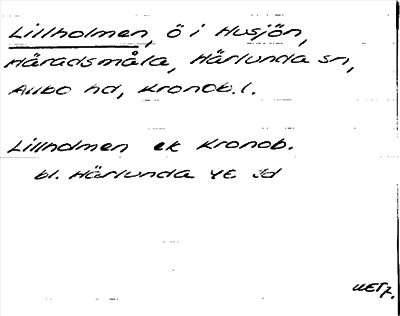 Lillholmen, ö i Husjön,
Häradsmåla, Härlunda sn,
Allbo hd, Kronob. l.
Lillholmen ek Kronob.
bl. Härlunda 4e Jd